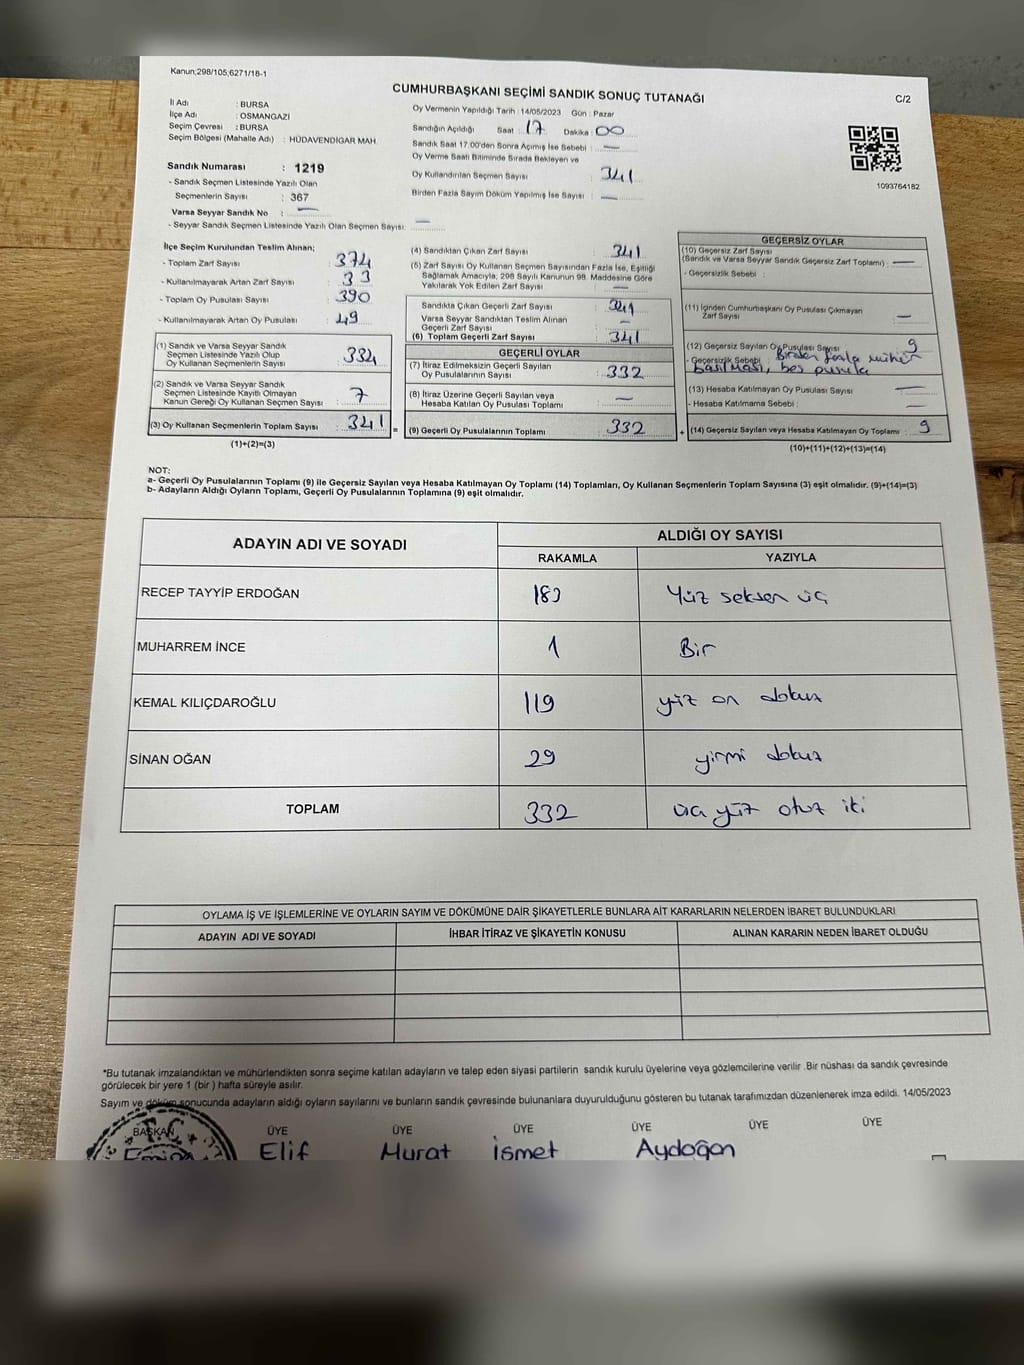 Kanun;298/105;6271/18-1
CUMHURBAŞKANI SEÇİMİ SANDIK SONUÇ TUTANAĞI
C/2
İl Adı : BURSA
İlçe Adı : OSMANGAZİ
Seçim Çevresi : BURSA
Seçim Bölgesi (Mahalle Adı) : HÜDAVENDİGAR MAH.
Sandık Numarası : 1219
- Sandık Seçmen Listesinde Yazılı Olan
Seçmenlerin Sayısı : 367
Varsa Seyyar Sandık No : —
- Seyyar Sandık Seçmen Listesinde Yazılı Olan Seçmen Sayısı: —
Oy Vermenin Yapıldığı Tarih : 14/05/2023 Gün : Pazar
Sandığın Açıldığı Saat : 17 Dakika : 00
Sandık Saat 17.00'den Sonra Açımış İse Sebebi : —
Oy Verme Saati Bitiminde Sırada Bekleyen ve
Oy Kullandırılan Seçmen Sayısı : 341
Birden Fazla Sayım Döküm Yapılmış İse Sayısı : —
1093764182
İlçe Seçim Kurulundan Teslim Alınan;
- Toplam Zarf Sayısı : 374
- Kullanılmayarak Artan Zarf Sayısı : 33
- Toplam Oy Pusulası Sayısı : 390
- Kullanılmayarak Artan Oy Pusulası : 49
(1) Sandık ve Varsa Seyyar Sandık
Seçmen Listesinde Yazılı Olup
Oy Kullanan Seçmenlerin Sayısı : 334
(2) Sandık ve Varsa Seyyar Sandık
Seçmen Listesinde Kayıtlı Olmayan
Kanun Gereği Oy Kullanan Seçmen Sayısı : 7
(3) Oy Kullanan Seçmenlerin Toplam Sayısı : 341
(1)+(2)=(3)
(4) Sandıktan Çıkan Zarf Sayısı : 341
(5) Zarf Sayısı Oy Kullanan Seçmen Sayısından Fazla İse, Eşitliği
Sağlamak Amacıyla, 298 Sayılı Kanunun 98. Maddesine Göre
Yakılarak Yok Edilen Zarf Sayısı : —
Sandıkta Çıkan Geçerli Zarf Sayısı : 341
Varsa Seyyar Sandıktan Teslim Alınan
Geçerli Zarf Sayısı : —
(6) Toplam Geçerli Zarf Sayısı : 341
GEÇERLİ OYLAR
(7) İtiraz Edilmeksizin Geçerli Sayılan
Oy Pusulalarının Sayısı : 332
(8) İtiraz Üzerine Geçerli Sayılan veya
Hesaba Katılan Oy Pusulası Toplamı : —
= (9) Geçerli Oy Pusulalarının Toplamı : 332
GEÇERSİZ OYLAR
(10) Geçersiz Zarf Sayısı
(Sandık ve Varsa Seyyar Sandık Geçersiz Zarf Toplamı) : —
- Geçersizlik Sebebi :
(11) İçinden Cumhurbaşkanı Oy Pusulası Çıkmayan
Zarf Sayısı : —
(12) Geçersiz Sayılan Oy Pusulası Sayısı : 9
- Geçersizlik Sebebi : Birden fazla mühür
basılması, boş pusula
(13) Hesaba Katılmayan Oy Pusulası Sayısı : —
- Hesaba Katılmama Sebebi : —
+ (14) Geçersiz Sayılan veya Hesaba Katılmayan Oy Toplamı : 9
(10)+(11)+(12)+(13)=(14)
NOT:
a- Geçerli Oy Pusulalarının Toplamı (9) ile Geçersiz Sayılan veya Hesaba Katılmayan Oy Toplamı (14) Toplamları, Oy Kullanan Seçmenlerin Toplam Sayısına (3) eşit olmalıdır. (9)+(14)=(3)
b- Adayların Aldığı Oyların Toplamı, Geçerli Oy Pusulalarının Toplamına (9) eşit olmalıdır.
ADAYIN ADI VE SOYADI
ALDIĞI OY SAYISI
RAKAMLA YAZIYLA
RECEP TAYYİP ERDOĞAN 183 Yüz seksen üç
MUHARREM İNCE 1 Bir
KEMAL KILIÇDAROĞLU 119 yüz on dokuz
SİNAN OĞAN 29 yirmi dokuz
TOPLAM 332 üç yüz otuz iki
OYLAMA İŞ VE İŞLEMLERİNE VE OYLARIN SAYIM VE DÖKÜMÜNE DAİR ŞİKAYETLERLE BUNLARA AİT KARARLARIN NELERDEN İBARET BULUNDUKLARI
ADAYIN ADI VE SOYADI İHBAR İTİRAZ VE ŞİKAYETİN KONUSU ALINAN KARARIN NEDEN İBARET OLDUĞU
*Bu tutanak imzalandıktan ve mühürlendikten sonra seçime katılan adayların ve talep eden siyasi partilerin sandık kurulu üyelerine veya gözlemcilerine verilir .Bir nüshası da sandık çevresinde
görülecek bir yere 1 (bir ) hafta süreyle asılır.
Sayım ve döküm sonucunda adayların aldığı oyların sayılarını ve bunların sandık çevresinde bulunanlara duyurulduğunu gösteren bu tutanak tarafımızdan düzenlenerek imza edildi. 14/05/2023
BAŞKAN ÜYE ÜYE ÜYE ÜYE ÜYE ÜYE
Elif Murat İsmet Aydoğan